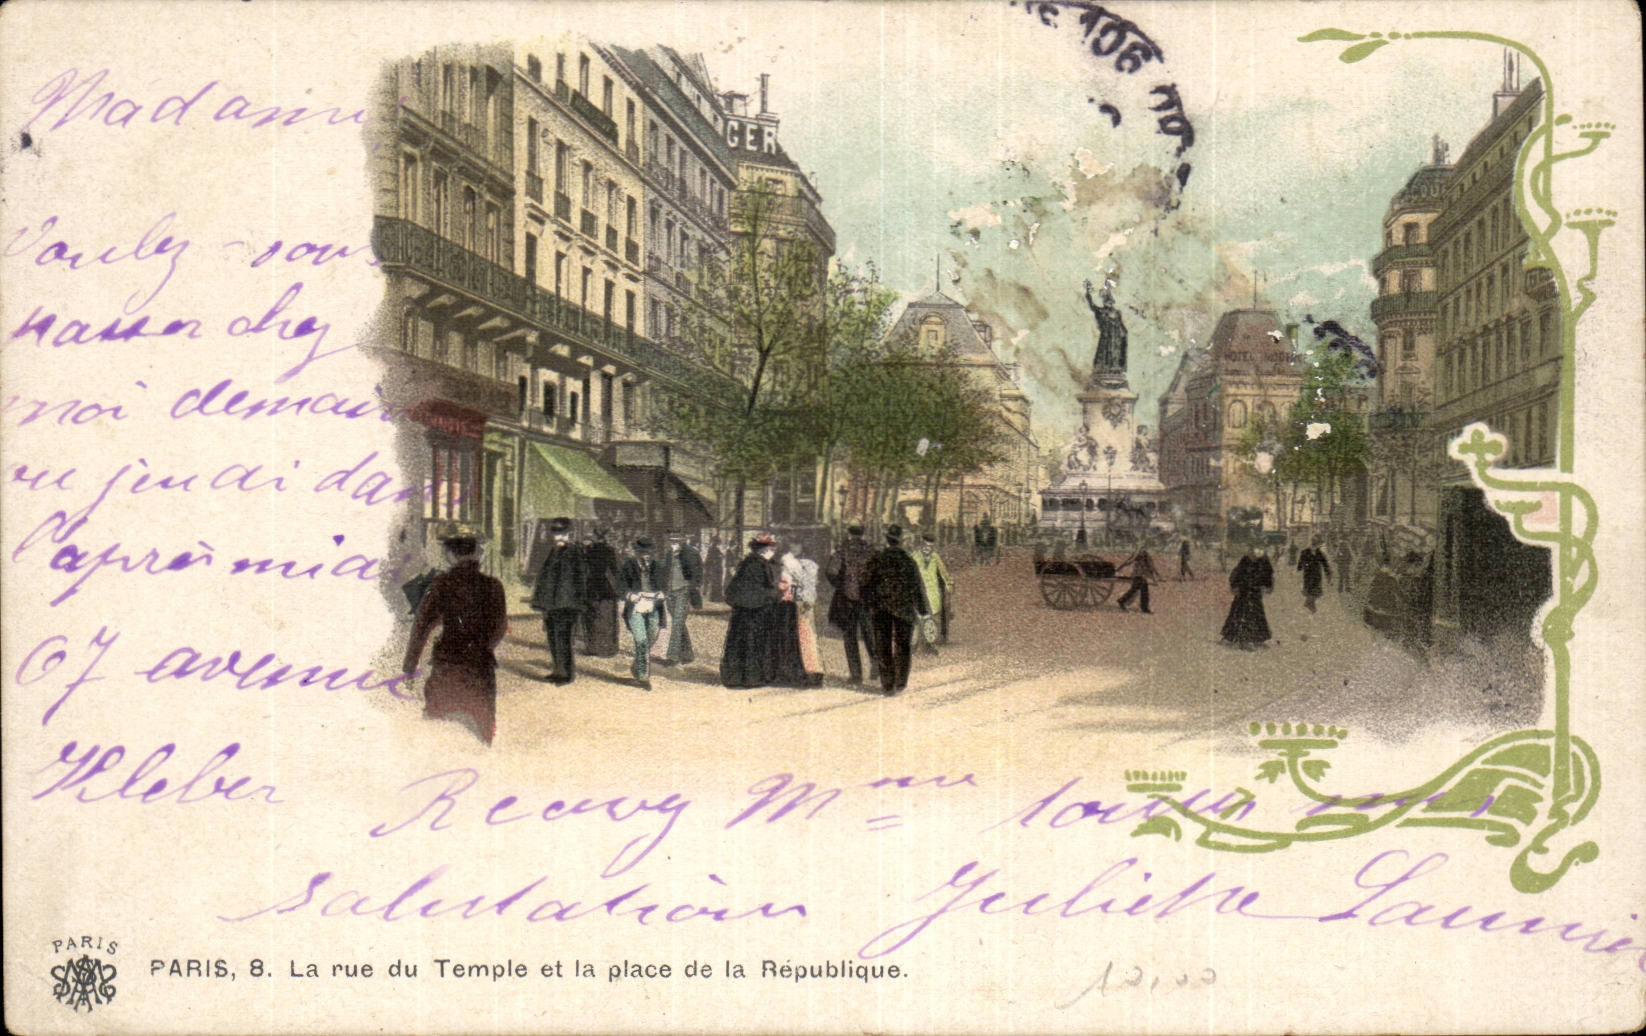 Madame
Voulez-vous
passer chez
moi demain
ou jeudi dans
l'après midi
67 avenue
Kleber
Recevez Mme toutes mes
salutations Juliette Launier
GER
HOTEL MODERNE
106
PARIS
PARIS, 8. La rue du Temple et la place de la République.